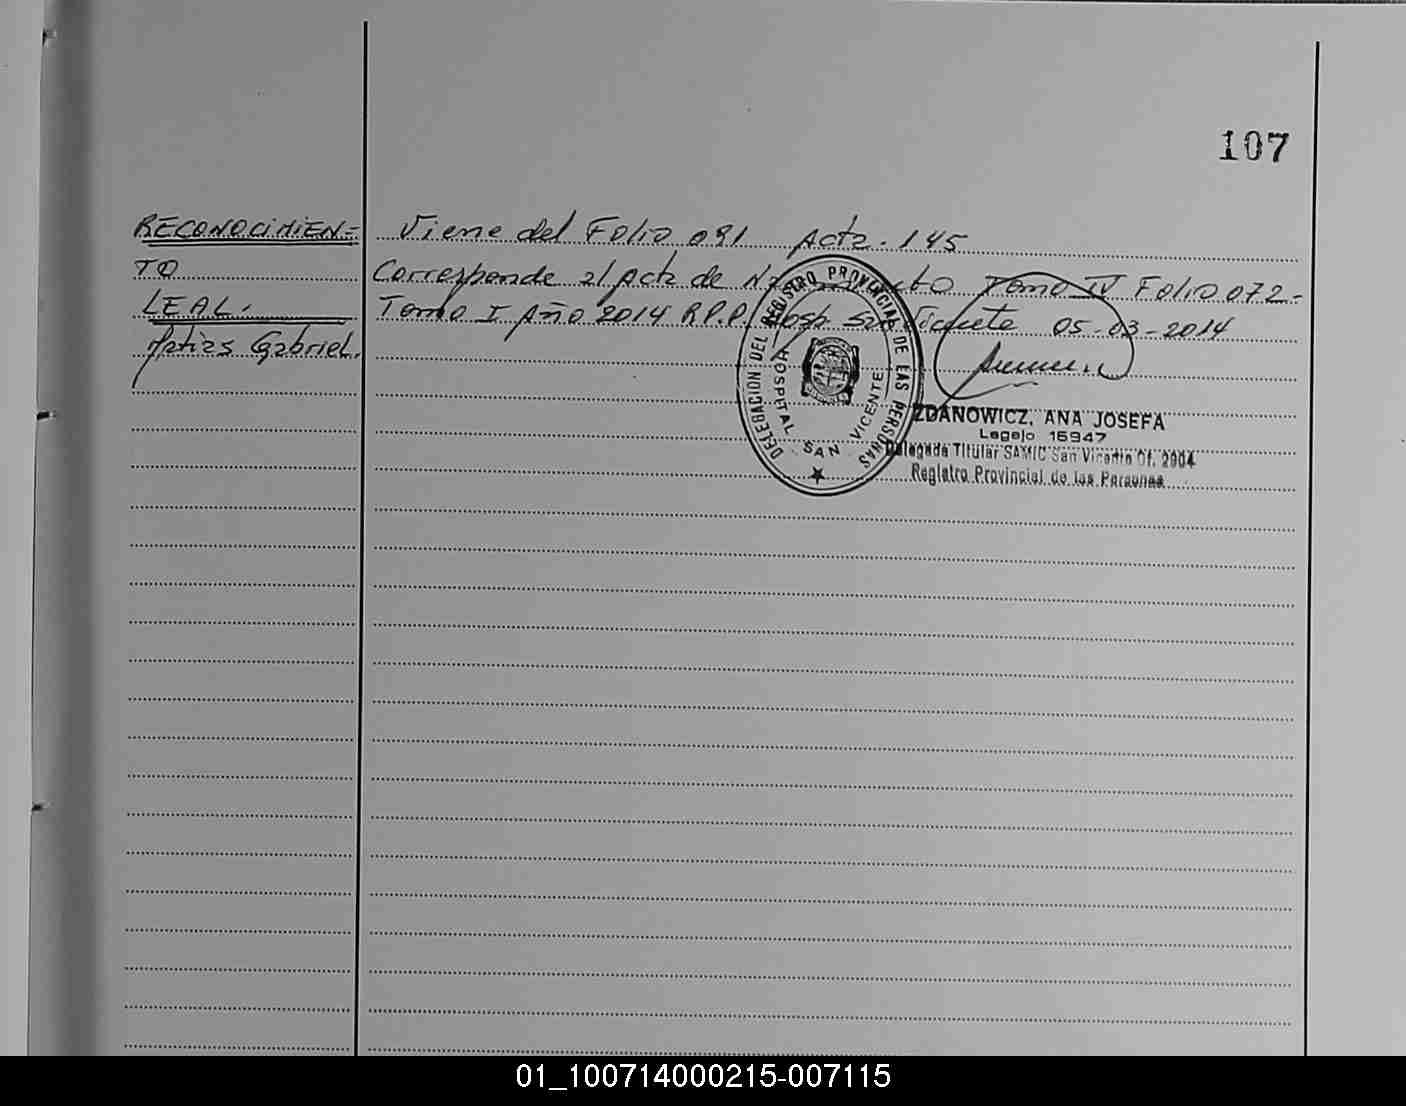 107
RECONOCIMIEN=
TO
LEAL.
Matias Gabriel.
Viene del Folio 091 Acta. 145
Corresponde al Acta de Nacimiento Tomo IV Folio 072-
Tomo I Año 2014 R.P.P. Hosp San Vicente 05-03-2014
DELEGACION DEL REGISTRO PROVINCIAL DE LAS PERSONAS
HOSPITAL SAN VICENTE
ZDANOWICZ, ANA JOSEFA
Legajo 15947
Delegada Titular SAMIC San Vicente Of. 2904
Registro Provincial de las Personas
01_100714000215-007115